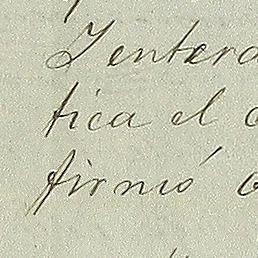 Y entera
tica el
firmó